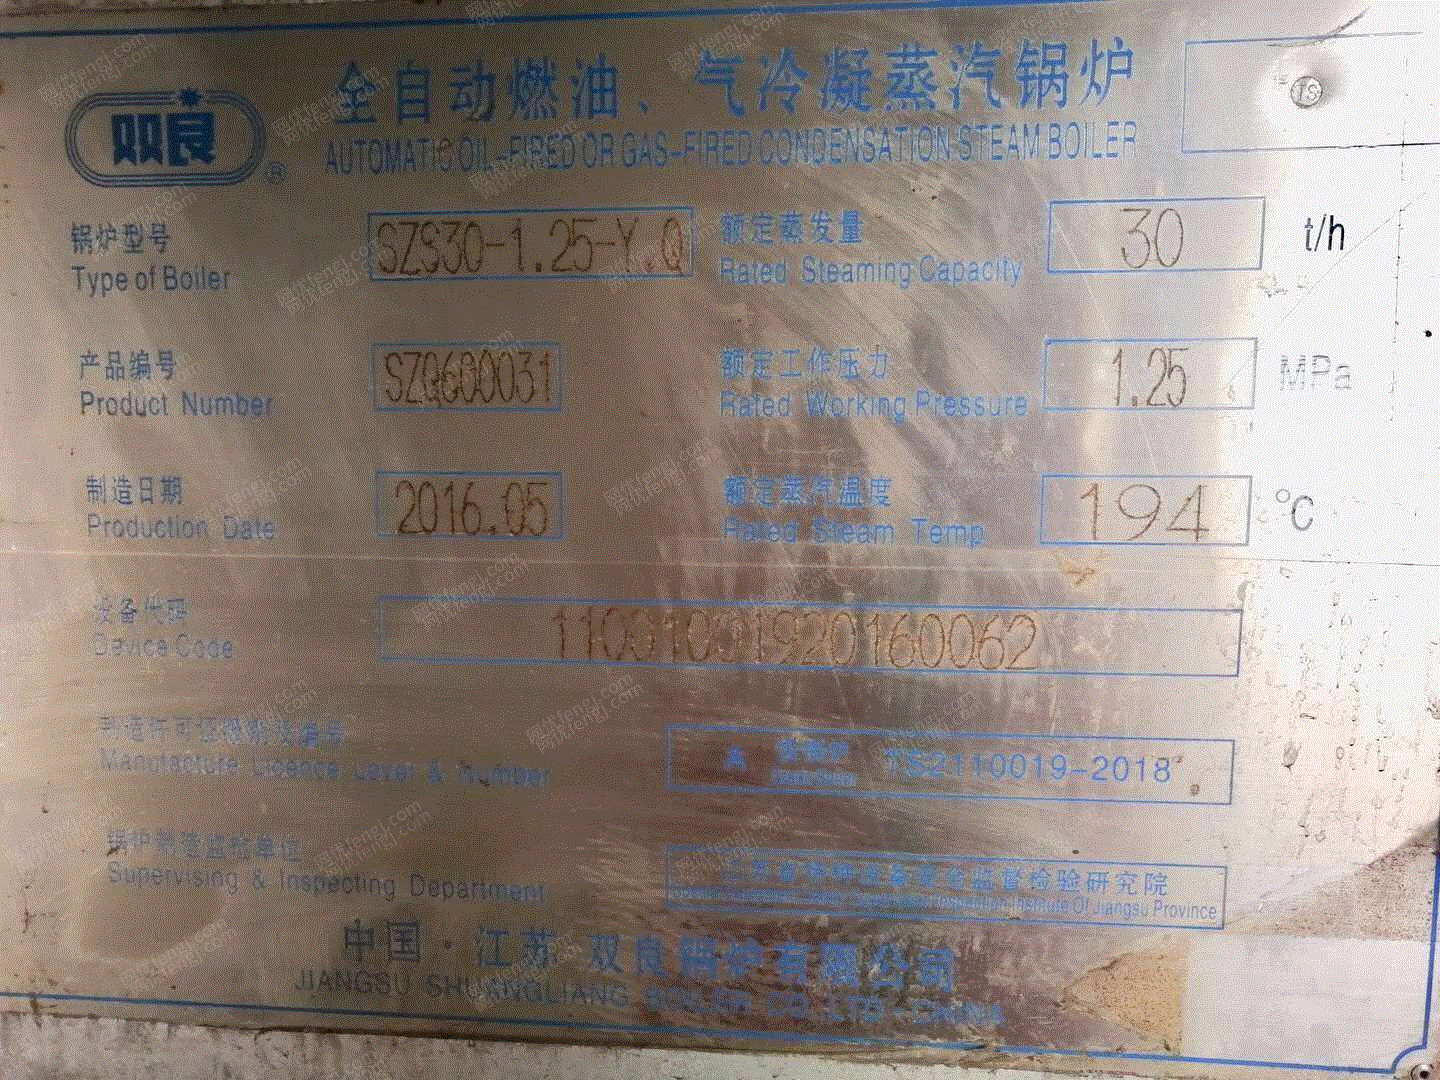 双良
®
全自动燃油、气冷凝蒸汽锅炉
AUTOMATIC OIL-FIRED OR GAS-FIRED CONDENSATION STEAM BOILER
锅炉型号 SZS30-1.25-Y.Q 额定蒸发量 30 t/h
Type of Boiler Rated Steaming Capacity
产品编号 额定工作压力 1.25 MPa
Product Number Rated Working Pressure
制造日期 2016.05 额定蒸汽温度 194 °C
Production Date Rated Steam Temp
设备代码 11001001920160062
Device Code
制造许可级别及编号
Manufacture Licence Level & Number TS2110019-2018
锅炉制造监检单位 安全监督检验研究院
Supervising & Inspecting Department Institute Of Jiangsu Province
中国·江苏双良锅炉有限公司
JIANGSU SHUANGLIANG